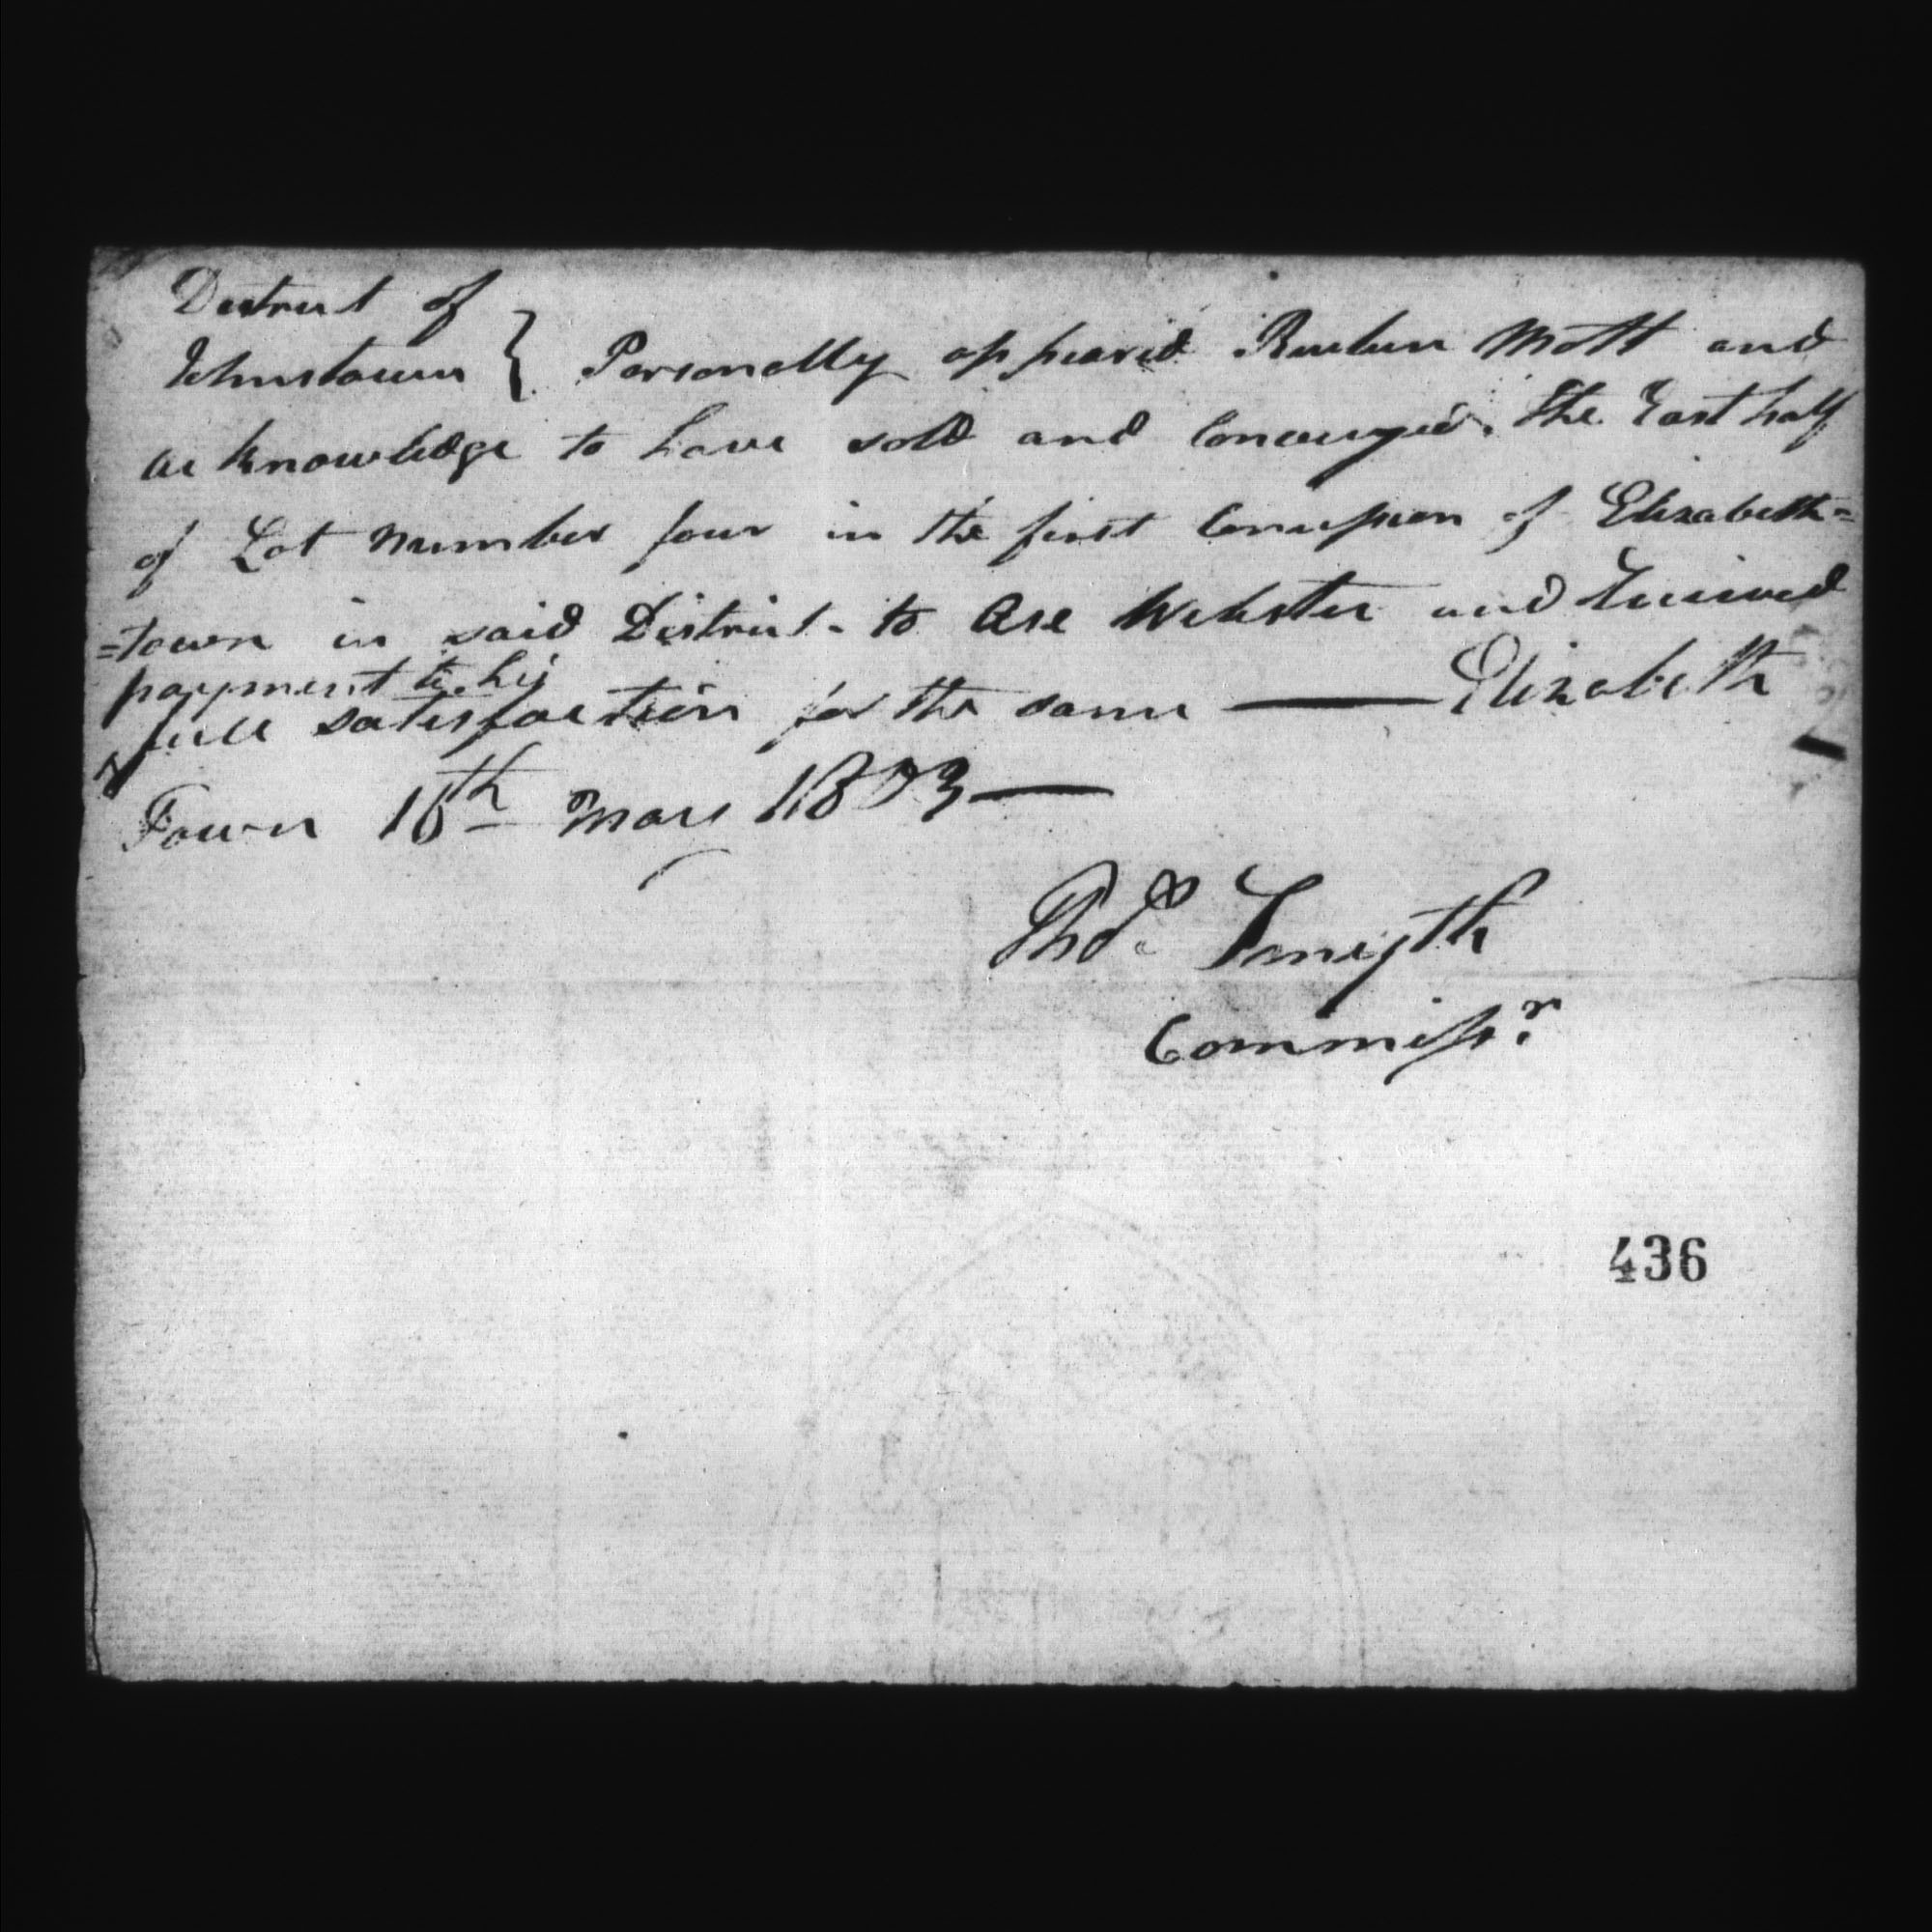 District of
Johnstown } Personally appeared Reuben Mott and
acknowledge to have sold and Conveuyed. The East half
of Lot Number four in the first Concession of Elizabeth=
=town in said District - to Asa Webster and Received
payment to his
full satisfaction for the same — Elizabeth
Town 16th 1803 —
Thos. Smyth
Commissr.
436